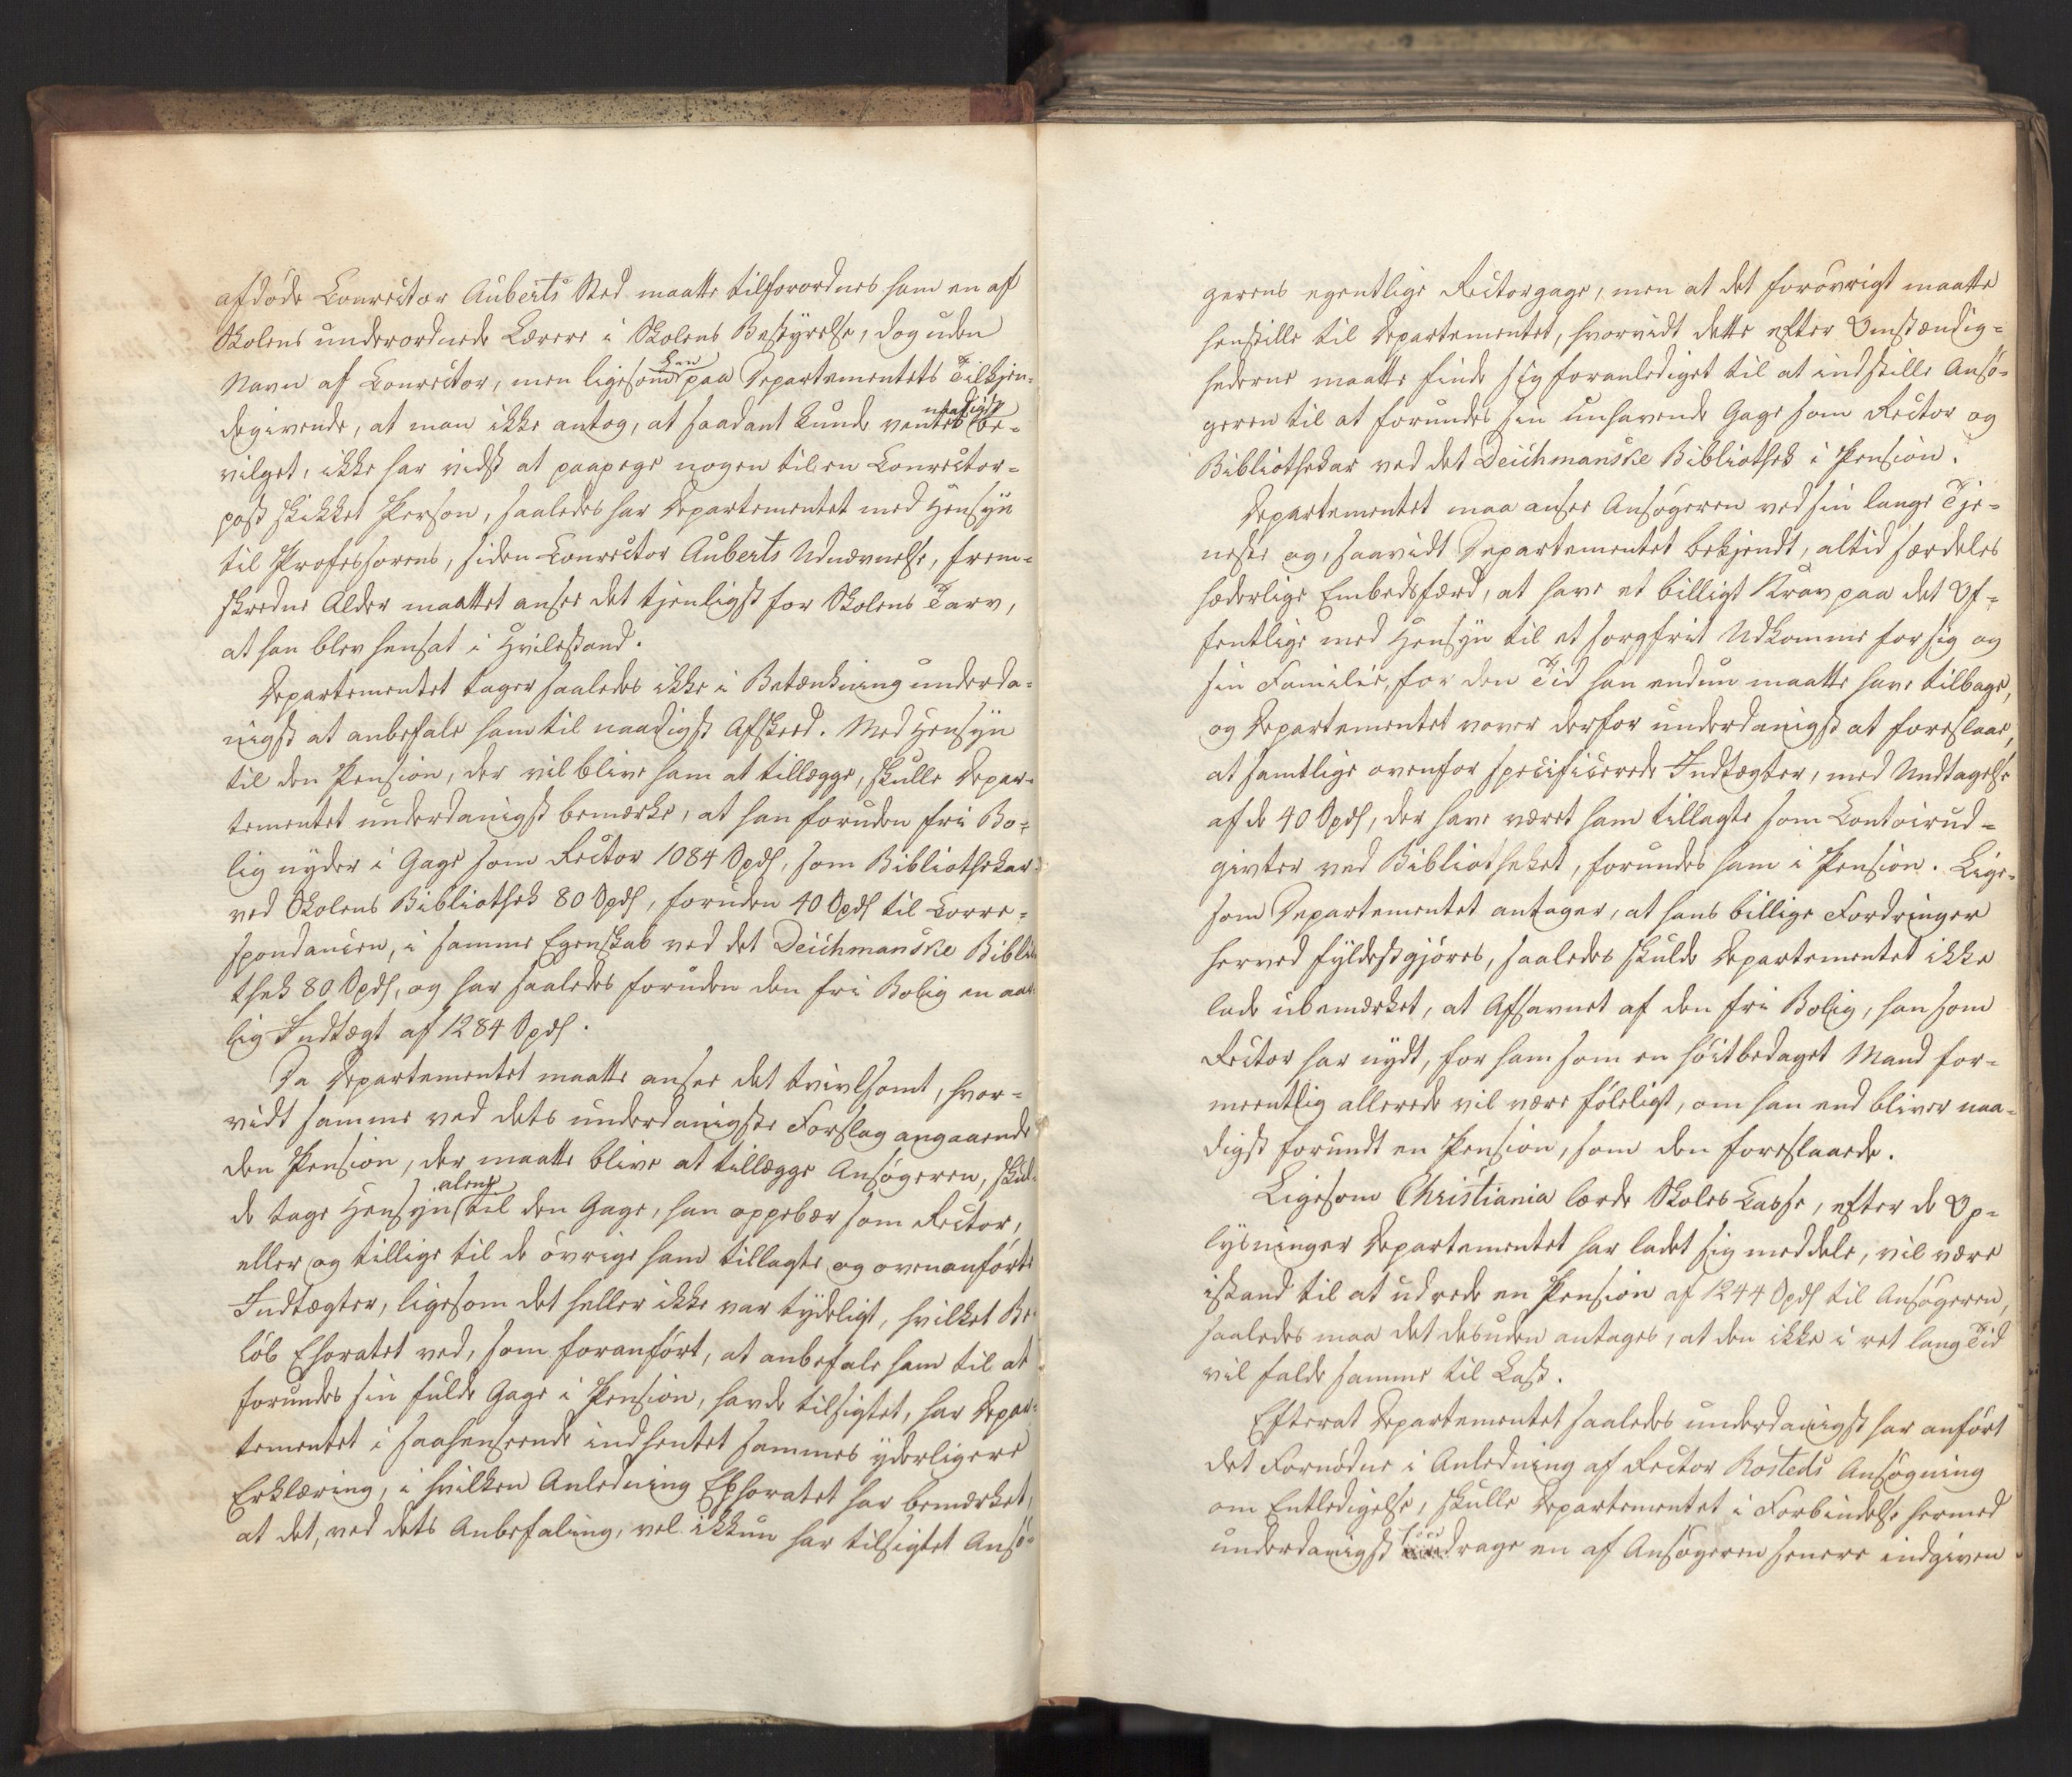 afdöde Conrector Auberts Sted maatte tilforordnes ham en af
Skolens underordnede Lærere i Skolens Bestyrelse, dog uden
Navn af Conrector, men ligesom han paa Departementets Tilkjen-
degivende, at man ikke antog, at saadant kunde ventes naadigst be-
vilget, ikke har vidst at paapege nogen til en Conrector-
post skikket Person, saaledes har Departementet med Hensyn
til Professorens, siden Conrector Auberts Udnævnelse, frem-
skredne Alder maattet ansee det tjenligst for Skolens Tarv,
at han blev hensat i Hvilestand.
Departementet tager saaledes ikke i Betænkning underda-
nigst at anbefale ham til naadigst Afsked. Med Hensyn
til den Pension, der vil blive ham at tillægge, skulle Depar-
tementet underdanigst bemærke, at han foruden fri Bo-
lig nyder i Gage som Rector 1084 Spds, som Bibliothekar
ved Skolens Bibliothek 80 Spds, foruden 40 Spds til Corre-
spondancen, i samme Egenskab ved det Deichmanske Biblio
thek 80 Spds, og har saaledes foruden den fri Bolig en aar-
lig Indtægt af 1284 Spds.
Da Departementet maatte ansee det tvivlsomt, hvor-
vidt samme ved dets underdanigste Forslag angaaende
den Pension, der maatte blive at tillægge Ansögeren, skul-
de tage Hensyn alene til den Gage, han oppebær som Rector,
eller og tillige til de övrige ham tillagte og ovenanförte
Indtægter, ligesom det heller ikke var tydeligt, hvilket Be-
löb Ephoratet ved, som foranfört, at anbefale ham til at
forundes sin fulde Gage i Pension, havde tilsigtet, har Depar-
tementet i saahenseende indhentet sammes yderligere
Erklæring, i hvilken Anledning Ephoratet har bemærket,
at det, ved dets Anbefaling, vel ikkun har tilsigtet Ansö-
gerens egentlige Rectorgage, men at det forövrigt maatte
henstille til Departementet, hvorvidt dette efter Omstændig-
hederne maatte finde sig foranlediget til at indstille Ansö-
geren til at forundes sin innhavende Gage som Rector og
Bibliothekar ved det Deichmanske Bibliothek i Pension.
Departementet maa ansee Ansögeren ved sin lange Tje-
neste og, saavidt Departementet bekjendt, altid særdeles
hæderlige Embedsfærd, at have et billigt Krav paa det Of-
fentlige med Hensyn til et sorgfrit Udkomme for sig og
sin Familie, for den Tid han endnu maatte have tilbage,
og Departementet vover derfor underdanigst at foreslaae,
at samtlige ovenfor specificerede Indtægter, med Undtagelse
af de 40 Spds, der have været ham tillagte som Contoirud-
givter ved Bibliotheket, forundes ham i Pension. Lige-
som Departementet antager, at hans billige Fordringer
herved fyldestgjöres, saaledes skulde Departementet ikke
lade ubemærket, at Afsavnet af den fri Bolig, han som
Rector har nydt, for ham som en höitbedaget Mand for-
meentlig allerede vil være föleligt, om han end bliver naa-
digst forundt en Pension, som den foreslaaede.
Ligesom Christiania lærde Skoles Casse, efter de Op-
lysninger Departementet har ladet sig meddele, vil være
istand til at udrede en Pension af 1244 Spds til Ansögeren,
saaledes maa det desuden antages, at den ikke i ret lang Tid
vil falde samme til Last.
Efterat Departementet saaledes underdanigst har anfört
det Fornödne i Anledning af Rector Rosteds Ansögning
om Entledigelse, skulle Departementet i Forbindelse hermed
underdanigst foredrage en af Ansögeren senere indgiven